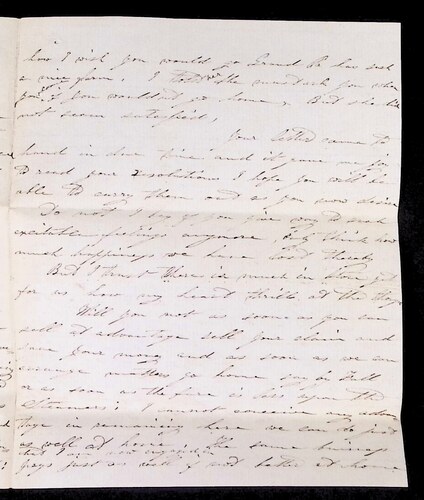 how I wish you would go home to
a nice farm. I told the
if you wouldnt go home, But she
not seem satisfied,
Your letter came to
hand in due time and it gave me joy
to read your resolutions I hope you will be
able to carry them out as you now desire
Do not I beg of you give way to such
excitable feelings anymore, only think how
much happiness we have lost thereby
But I trust there is much in
for us, how my heart thrills at the
Will you not as soon as you can
sell at advantage sell your claim and
save your money and as soon as we can
arrange matters go home say in Fall
or as soon as the fare is less upon the
Steamers; I cannot conceive any advan
tage in remaining here we can do just
as well at home the same
that I am now engaged in
pays just as well & much better at home